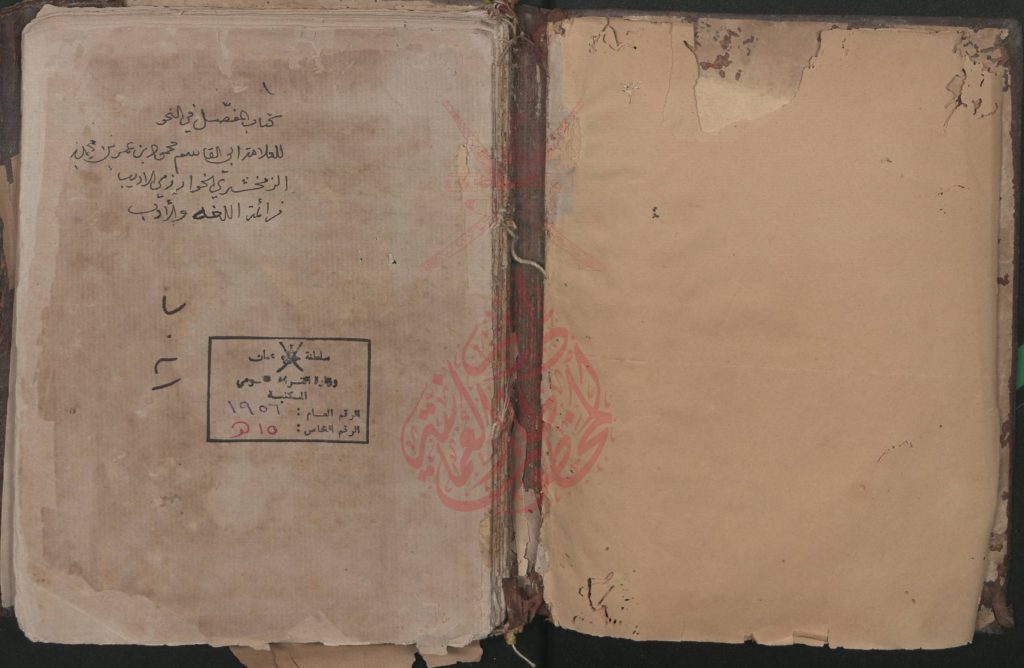 ١
كتاب المفصّل في النحو
للعلامة ابي القاسم محمود بن عمر بن محمد
الزمخشري الخوارزمي الاديب
من ائمة اللغه والأدب
سلطنة عمان
وزارة التراث القومي
المكتبة
الرقم العام : ١٩٥٦
الرقم الخاص : ١٥ هـ
المخطوطات العمانية